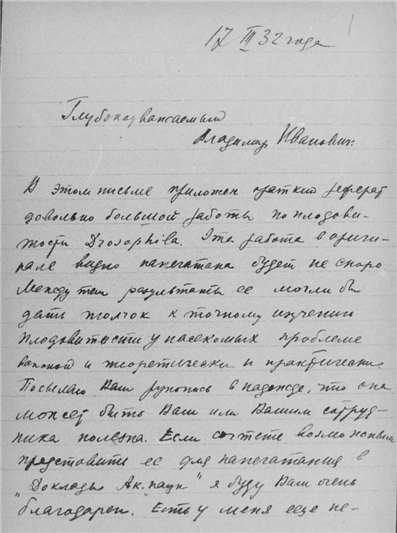 17 III 32 года
Глубокоуважаемый
Владимир Иванович.
В этом письме приложен краткий реферат
довольно большой работы по плодови-
тости Drosophila. Эта работа в ориги-
нале видно напечатана будет не скоро
Между тем результаты ее могли бы
дать толчок к точному изучению
плодовитости у насекомых проблеме
важной и теоретически и практически.
Посылаю Вам рукопись в надежде, что она
может быть Вам или Вашим сотруд-
никам полезна. Если сочтете возможным
представить ее для напечатания в
"Доклады Ак. наук" я буду Вам очень
благодарен. Есть у меня еще не-